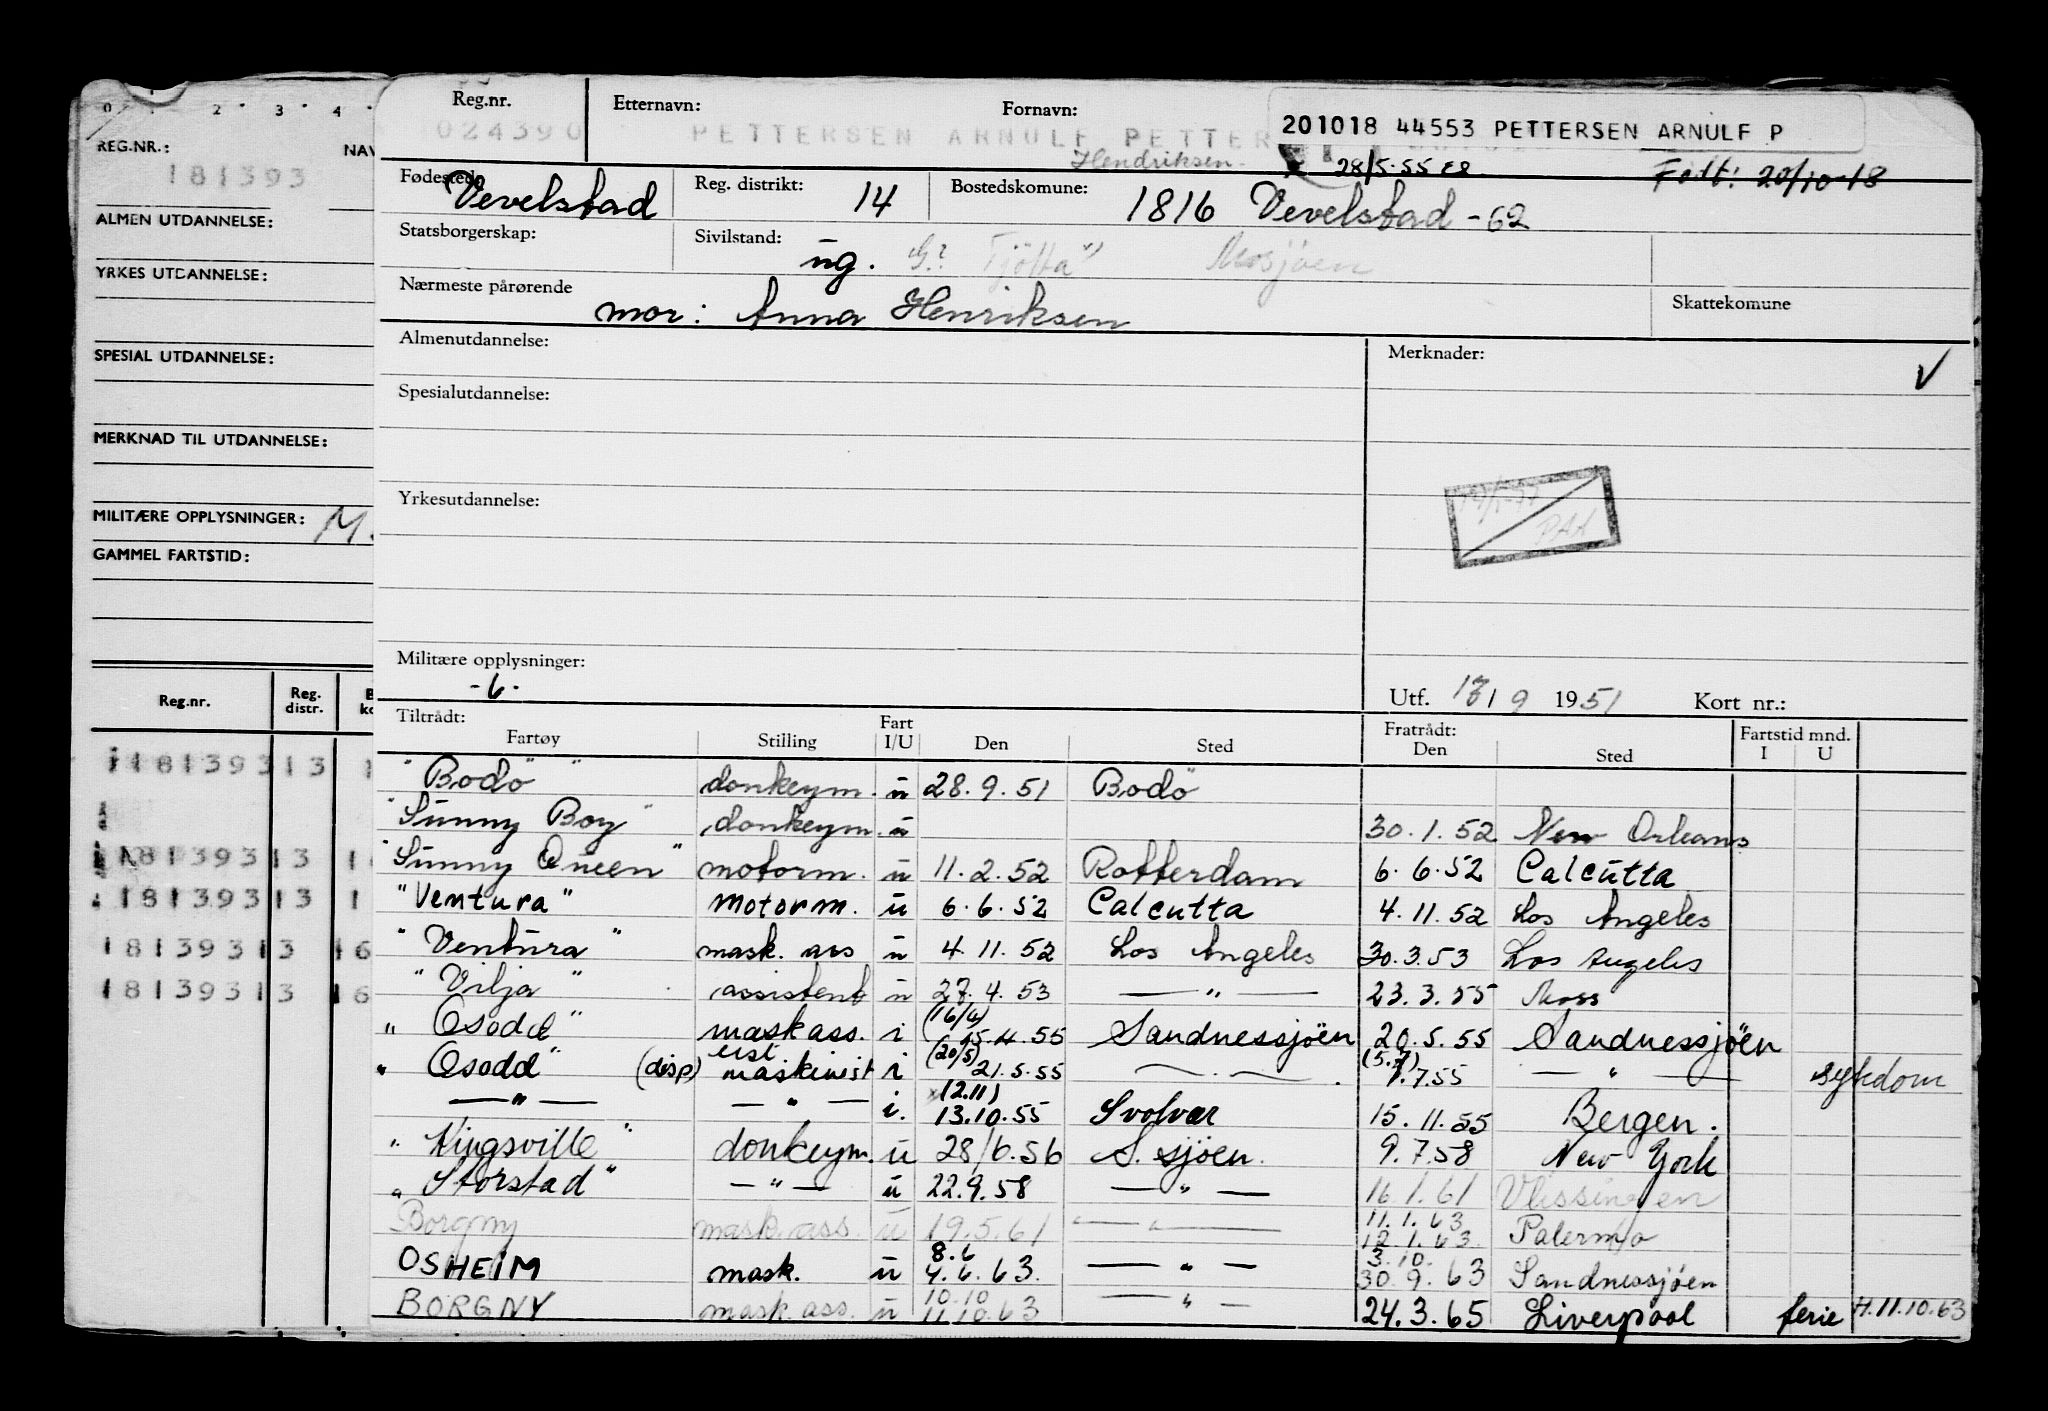 0 1 2 3 4
REG.NR.: NAV
181393
ALMEN UTDANNELSE:
YRKES UTDANNELSE:
SPESIAL UTDANNELSE:
MERKNAD TIL UTDANNELSE:
MILITÆRE OPPLYSNINGER: M.
GAMMEL FARTSTID:
Reg.nr. Reg. distr.
181393 13 1
181393 13 1
181393 13 1
181393 13 16
181393 13 16
Reg.nr. Etternavn: Fornavn:
024390 PETTERSEN ARNULF PETTER
201018 44553 PETTERSEN ARNULF P
Hendriksen. 28/5-55 Født: 20/10-18
Fødested: Vevelstad Reg. distrikt: 14 Bostedskomune: 1816 Vevelstad - 62
Statsborgerskap: Sivilstand: ug. "Tjötta" Mosjöen
Nærmeste pårørende mor: Anna Henriksen Skattekomune
Almenutdannelse: Merknader: √
Spesialutdannelse:
Yrkesutdannelse:
Militære opplysninger:
-6-
Utf. 9 1951 Kort nr.:
Tiltrådt: Fart Fratrådt: Fartstid mnd.
Fartøy Stilling I/U Den Sted Den Sted I U
"Bodö" donkeym. u 28.9.51 Bodö
"Sunny Boy" donkeym. u 30.1.52 New Orleans
"Sunny Queen" motorm. u 11.2.52 Rotterdam 6.6.52 Calcutta
"Ventura" motorm. u 6.6.52 Calcutta 4.11.52 Los Angeles
"Ventura" mask. ass u 4.11.52 Los Angeles 30.3.53 Los Angeles
"Vilja" assistent u 27.4.53 — " — 23.3.55 Moss
"Osodd" maskass. i (16/4) 15.4.55 Sandnessjöen 20.5.55 Sandnessjöen
"Osodd" (disp) maskinist i (20/5) 21.5.55 — " — (5.7) 7.7.55 — " — sykdom
— " — — " — i. 12.11) 13.10.55 Svolvær 15.11.55 Bergen.
"Kingsville" donkeym. u 28/6.56 S.sjöen. 9.7.58 New York
"Storstad" — " — u 22.9.58 — " — 16.1.61 Vlissingen
Borgny mask.ass. u 19.5.61 — " — 11.1.63 12.1.63 Palermo
OSHEIM mask. u 8.6 4.6.63. — " — 3.10. 30.9.63 Sandnessjöen
BORGNY mask.ass. u 10.10 11.10.63 — " — 24.3.65 Liverpool ferie H.11.10.63